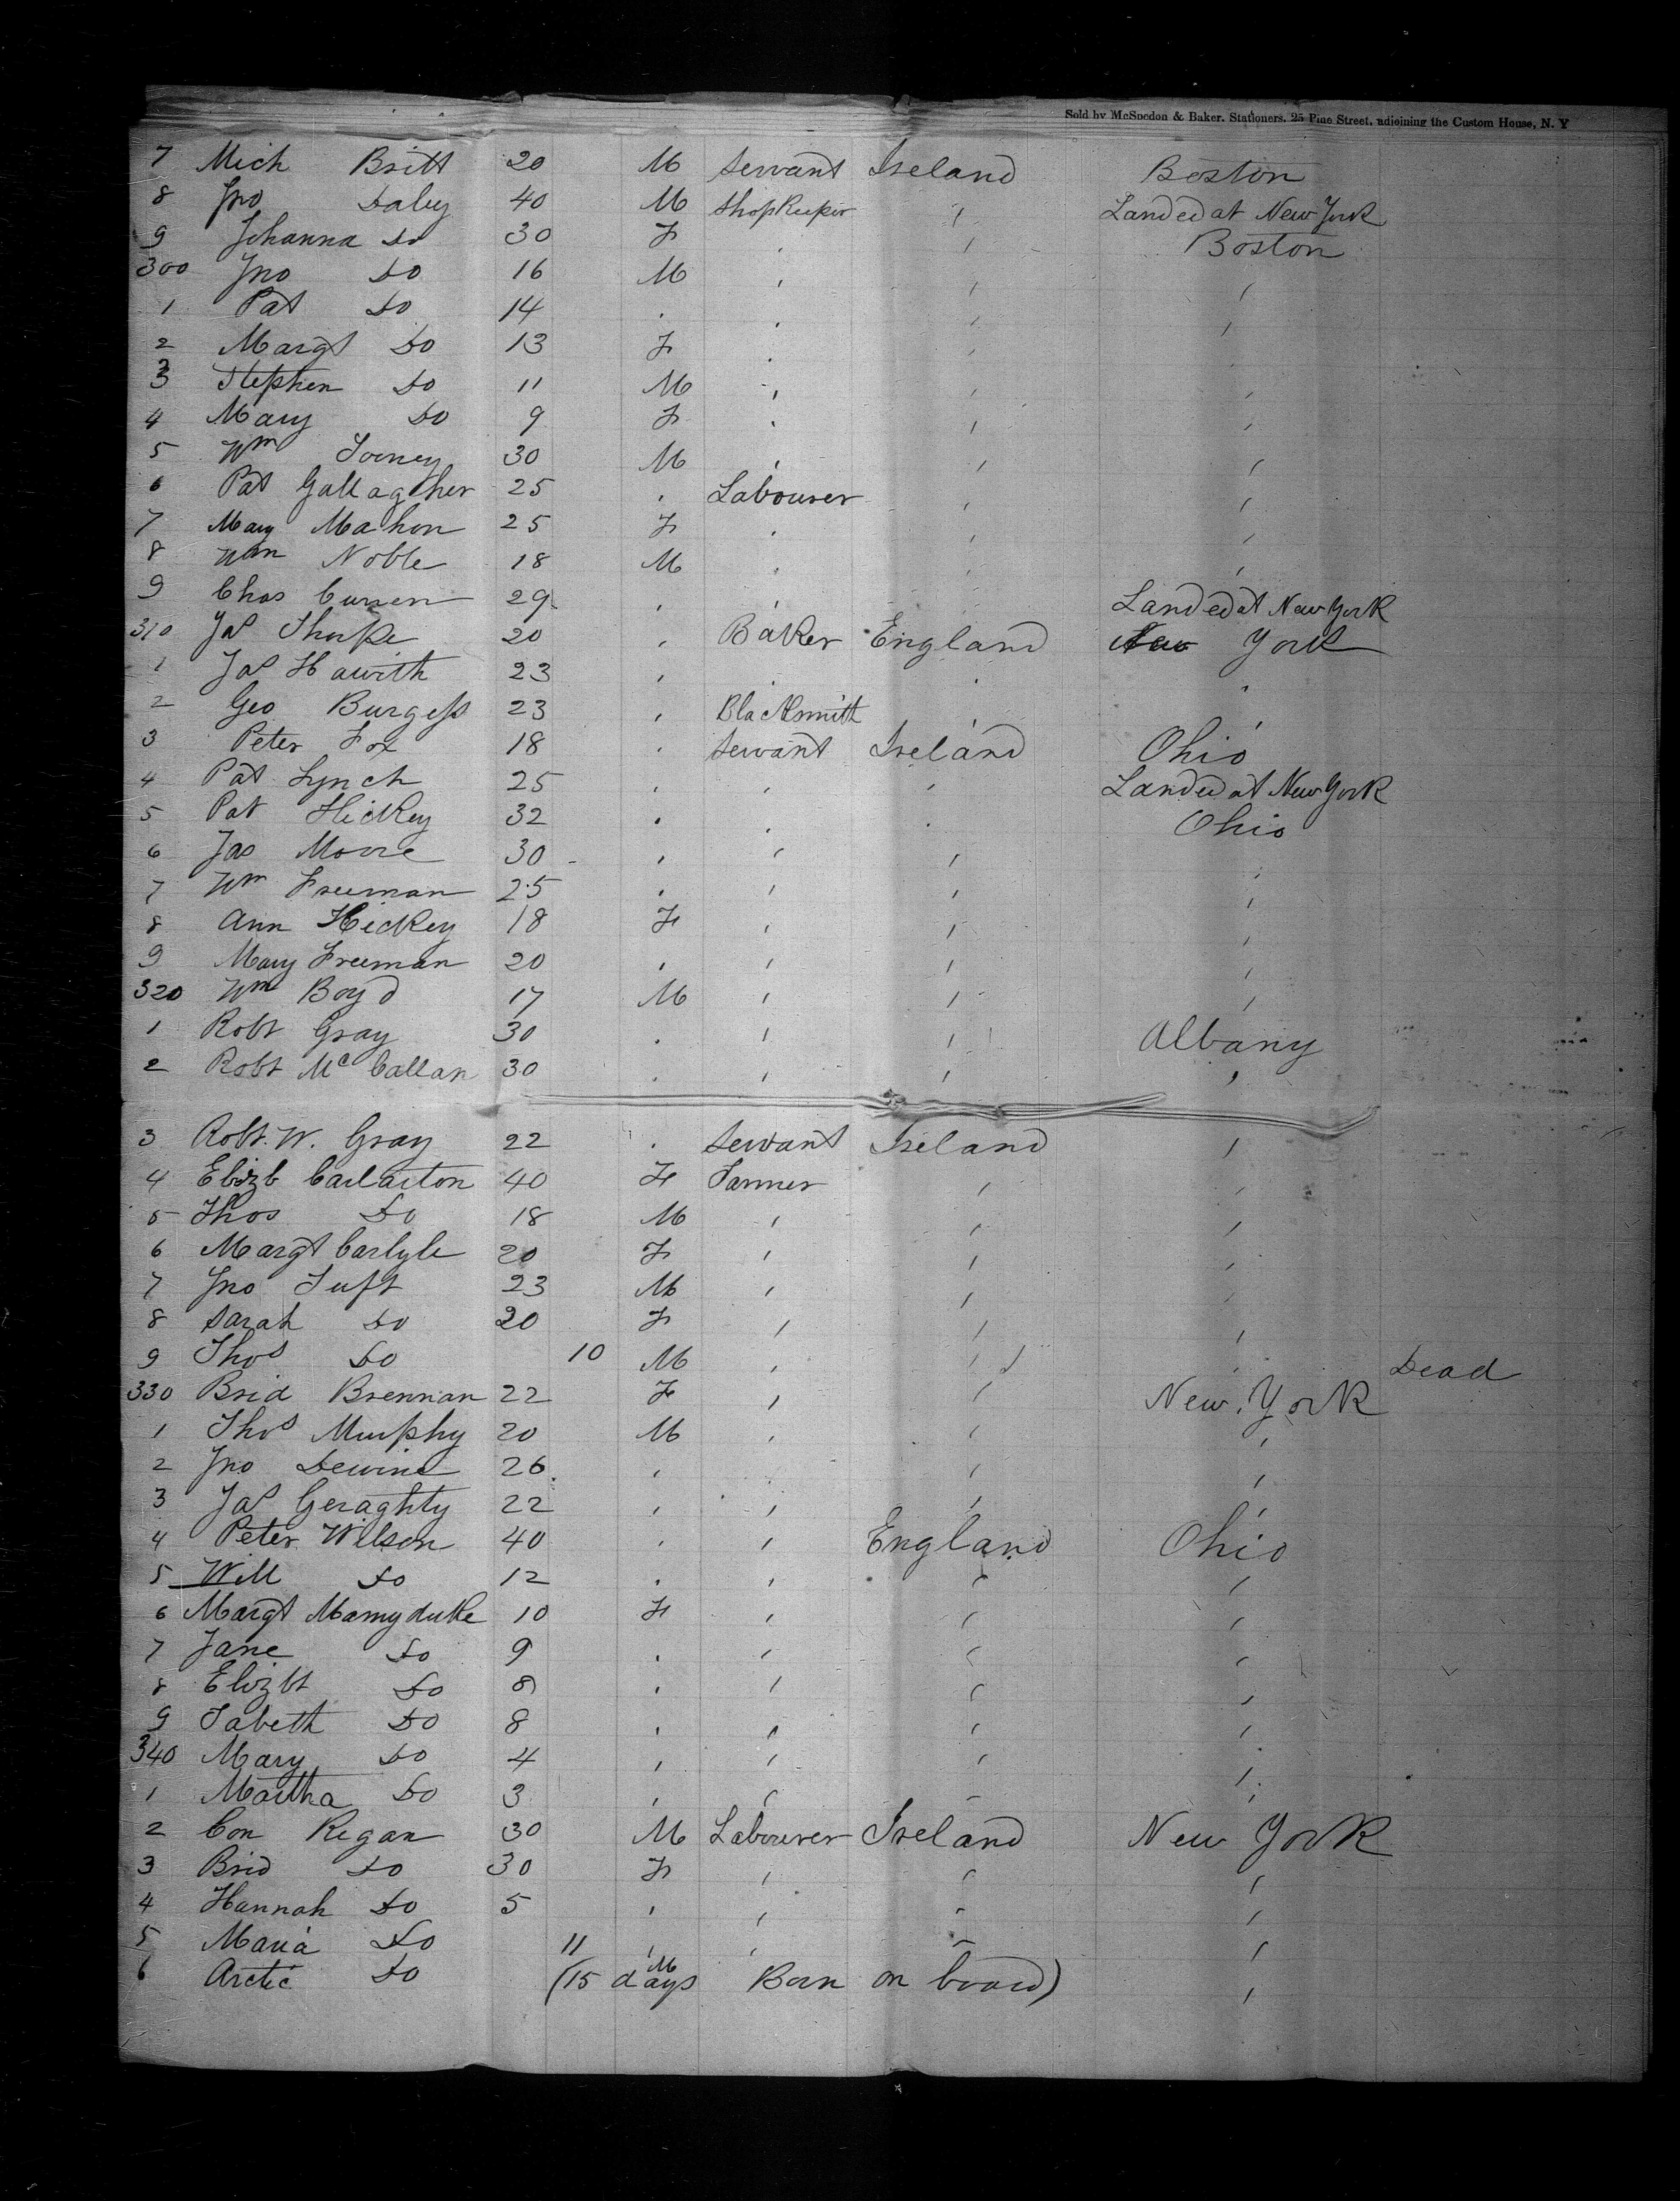 Sold by McSpedon & Baker, Stationers, 25 Pine Street, adjoining the Custom House, N. Y
7 Mich Britt 20 M Servant Ireland Boston
8 Jno Daley 40 M Shopkeeper ' Landed at New York
9 Johanna Do 30 F ' ' Boston
300 Jno Do 16 M ' ' '
1 Pat Do 14 ' ' ' '
2 Margt Do 13 F ' '
3 Stephen Do 11 M ' ' '
4 Mary Do 9 F ' ' '
5 Wm Toomey 30 M ' ' '
6 Pat Gallagther 25 ' Labourer ' '
7 Mary Mahon 25 F ' ' '
8 Wm Noble 18 M ' ' '
9 Chas Curren 29 ' ' ' Landed at New York
310 Jas Thorpe 20 ' Baker England New York
1 Jas Hawith 23 ' ' ' '
2 Geo Burgess 23 ' Blacksmith '
3 Peter Fox 18 ' Servant Ireland Ohio
4 Pat Lynch 25 ' ' ' Landed at New York
5 Pat Hickey 32 ' ' ' Ohio
6 Jas Moore 30 ' ' ' '
7 Wm Freeman 25 ' ' ' '
8 Ann Hickey 18 F ' ' '
9 Mary Freeman 20 ' ' ' '
320 Wm Boyd 17 M ' ' '
1 Robt Gray 30 ' ' ' Albany
2 Robt McCallan 30 ' ' ' '
3 Robt. W. Gray 22 ' Servant Ireland '
4 Elizb Carlarton 40 F Farmer ' '
5 Thos Do 18 M ' ' '
6 Margt Carlyle 20 F ' ' '
7 Jno Tuft 23 M ' '
8 Sarah Do 20 F ' ' '
9 Thos Do 10 M ' ' ' Dead
330 Brid Brennan 22 F ' ' New York
1 Thos Murphy 20 M ' ' '
2 Jno Devine 26 ' ' ' '
3 Jas Geraghty 22 ' ' ' '
4 Peter Wilson 40 ' ' England Ohio
5 Will Do 12 ' ' ' '
6 Margt Mamyduke 10 F ' ' '
7 Jane Do 9 ' ' ' '
8 Elizbt Do 8 ' ' ' '
9 Tabeth Do 8 ' ' ' '
340 Mary Do 4 ' ' ' '
1 Martha Do 3 ' ' ' '
2 Con Regan 30 M Labourer Ireland New York
3 Brid Do 30 F ' ' '
4 Hannah Do 5 ' ' ' '
5 Maria Do 11 ' ' ' '
6 Arctic Do (15 days M Born on board) '